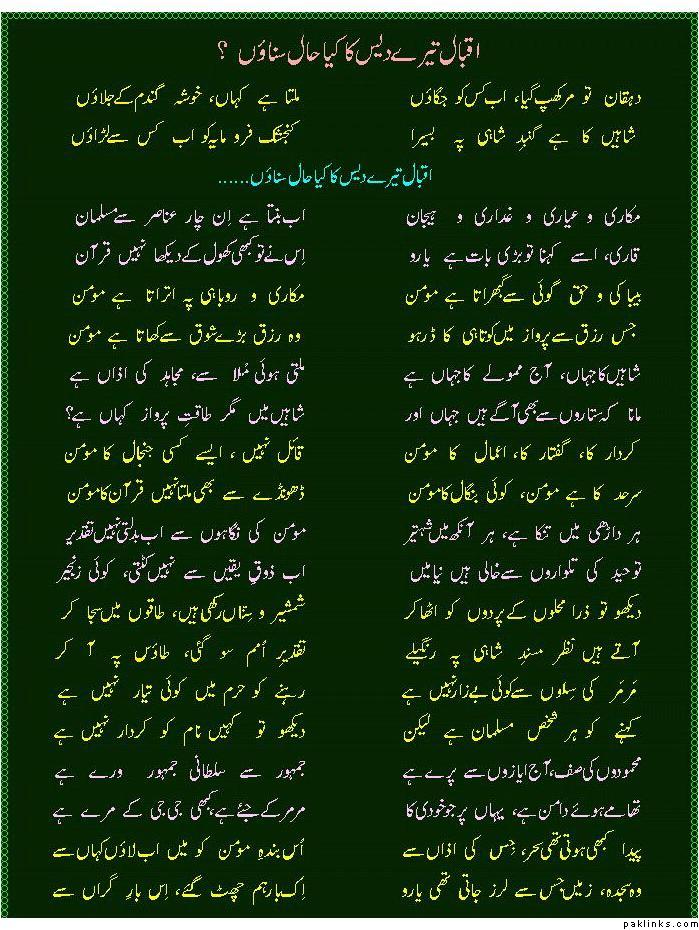 اقبال تیرے دیس کا کیا حال سناؤں ؟
دہقان تو مرکھپ گیا، اب کس کو جگاؤں ملتا ہے کہاں، خوشہ گندم کے جلاؤں
شاہیں کا ہے گنبدِ شاہی پہ بسیرا کنجشک فرومایہ کو اب کس سے لڑاؤں
اقبال تیرے دیس کا کیا حال سناؤں......
مکاری و عیاری و غداری و ہیجان اب بنتا ہے اِن چار عناصر سے مسلمان
قاری، اسے کہنا تو بڑی بات ہے یارو اِس نے تو کبھی کھول کے دیکھا نہیں قرآن
بیباکی و حق گوئی سے گھبراتا ہے مومن مکاری و روباہی پہ اتراتا ہے مومن
جس رزق سے پرواز میں کوتاہی کا ڈر ہو وہ رزق بڑے شوق سے کھاتا ہے مومن
شاہیں کا جہاں، آج ممولے کا جہاں ہے ملتی ہوئی مُلا سے، مجاہد کی اذاں ہے
مانا کہ ستاروں سے بھی آگے ہیں جہاں اور شاہیں میں مگر طاقتِ پرواز کہاں ہے؟
کردار کا، گفتار کا، اعمال کا مومن قائل نہیں، ایسے کسی جنجال کا مومن
سرحد کا ہے مومن، کوئی بنگال کا مومن ڈھونڈے سے بھی ملتا نہیں قرآن کا مومن
ہر داڑھی میں تنکا ہے، ہر آنکھ میں شہتیر مومن کی نگاہوں سے اب بدلتی نہیں تقدیر
توحید کی تلواروں سے خالی ہیں نیامیں اب ذوقِ یقیں سے نہیں کٹتی، کوئی زنجیر
دیکھو تو ذرا محلوں کے پردوں کو اٹھا کر شمشیر و سِناں رکھی ہیں، طاقوں میں سجا کر
آتے ہیں نظر مسندِ شاہی پہ رنگیلے تقدیرِ اُمم سو گئی، طاؤس پہ آ کر
مَرمَر کی سِلوں سے کوئی بے زار نہیں ہے رہنے کو حرم میں کوئی تیار نہیں ہے
کہنے کو ہر شخص مسلمان ہے لیکن دیکھو تو کہیں نام کو کردار نہیں ہے
محمودوں کی صف، آج ایازوں سے پرے ہے جمہور سے سلطانیٔ جمہور ورے ہے
تھامے ہوئے دامن ہے، یہاں پر جو خودی کا مرمر کے جئے ہے، کبھی جی جی کے مرے ہے
پیدا کبھی ہوتی تھی سحر، جِس کی اذاں سے اُس بندہِ مومن کو میں اب لاؤں کہاں سے
وہ سجدہ، زمیں جس سے لرز جاتی تھی یارو اِک بار ہم چھٹ گئے، اِس بارِ گراں سے
paklinks.com